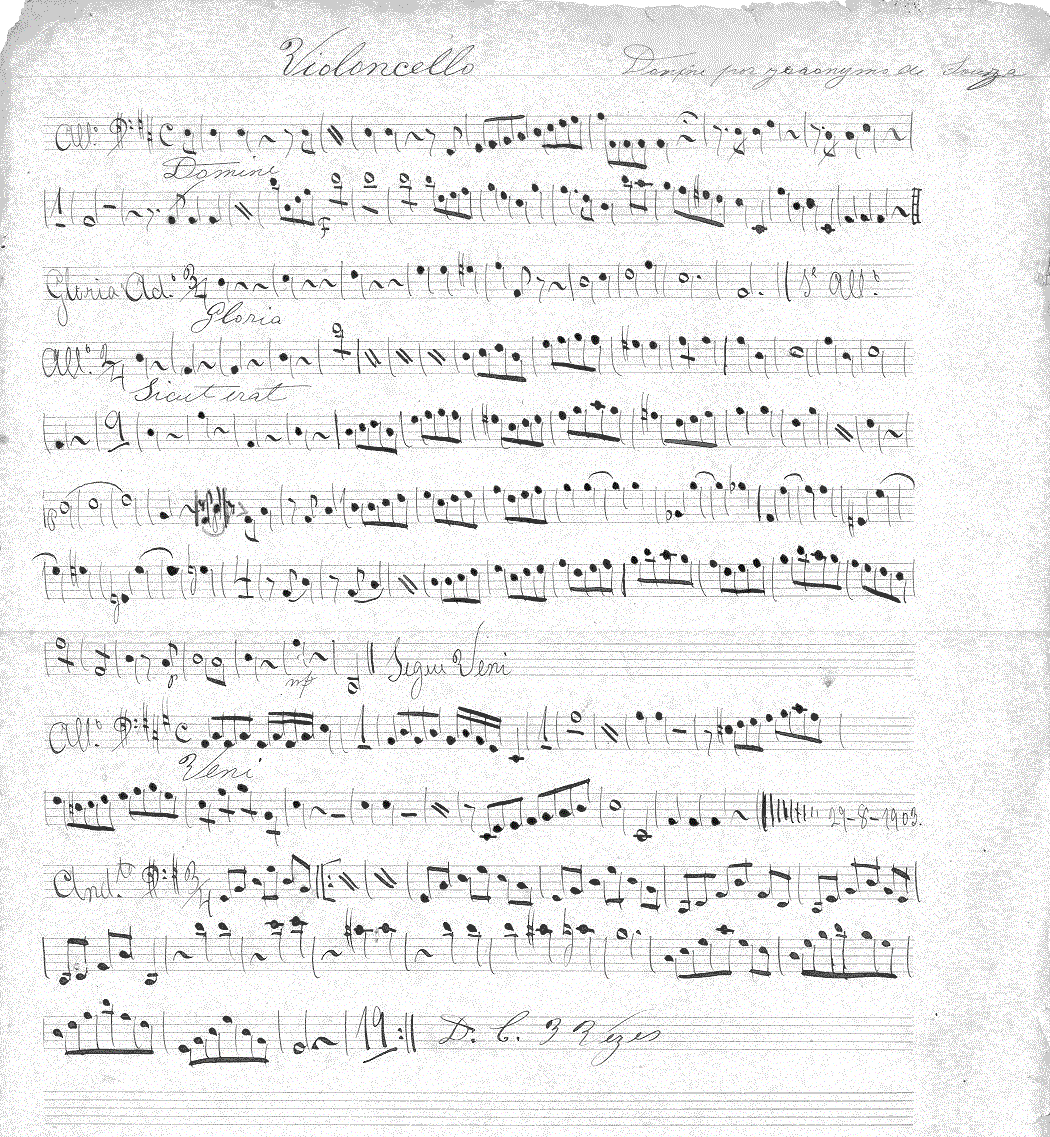 Violoncello
Domine por Jeronymo de Souza
All.º C
Domini
1
f
Gloria Ad.º 3/4 S.e All.º
Gloria
All.º 2/4
Sicut erat
9
18
p mf Segue Veni
All.º C 1 1
Veni
29-8-1903.
And.te 3/4
19 D. C. 3 Vezes